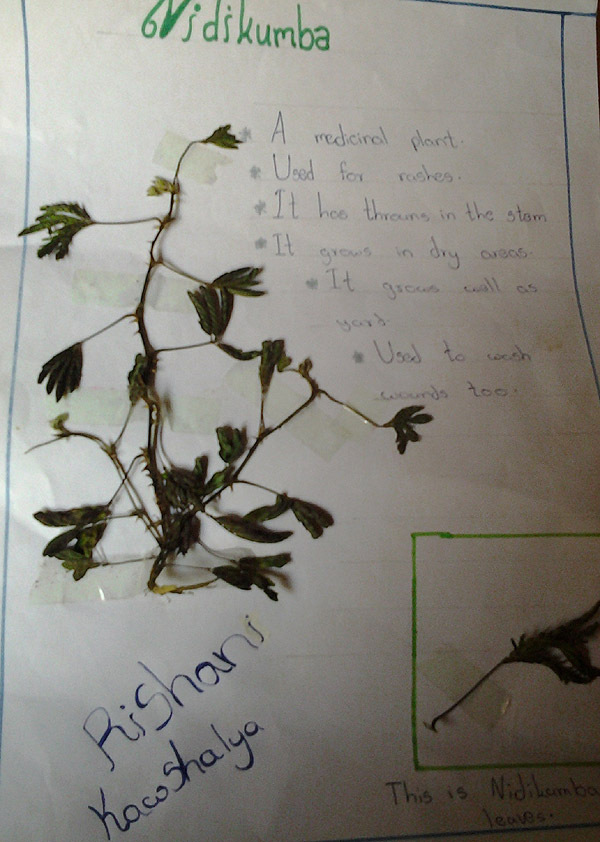 Nidikumba
* A medicinal plant.
* Used for rashes.
* It has throuns in the stem
* It grows in dry areas.
* It grows well as
yard.
* Used to wash
wounds too.
Rishani
Kaoshalya
This is Nidikumba
leaves.